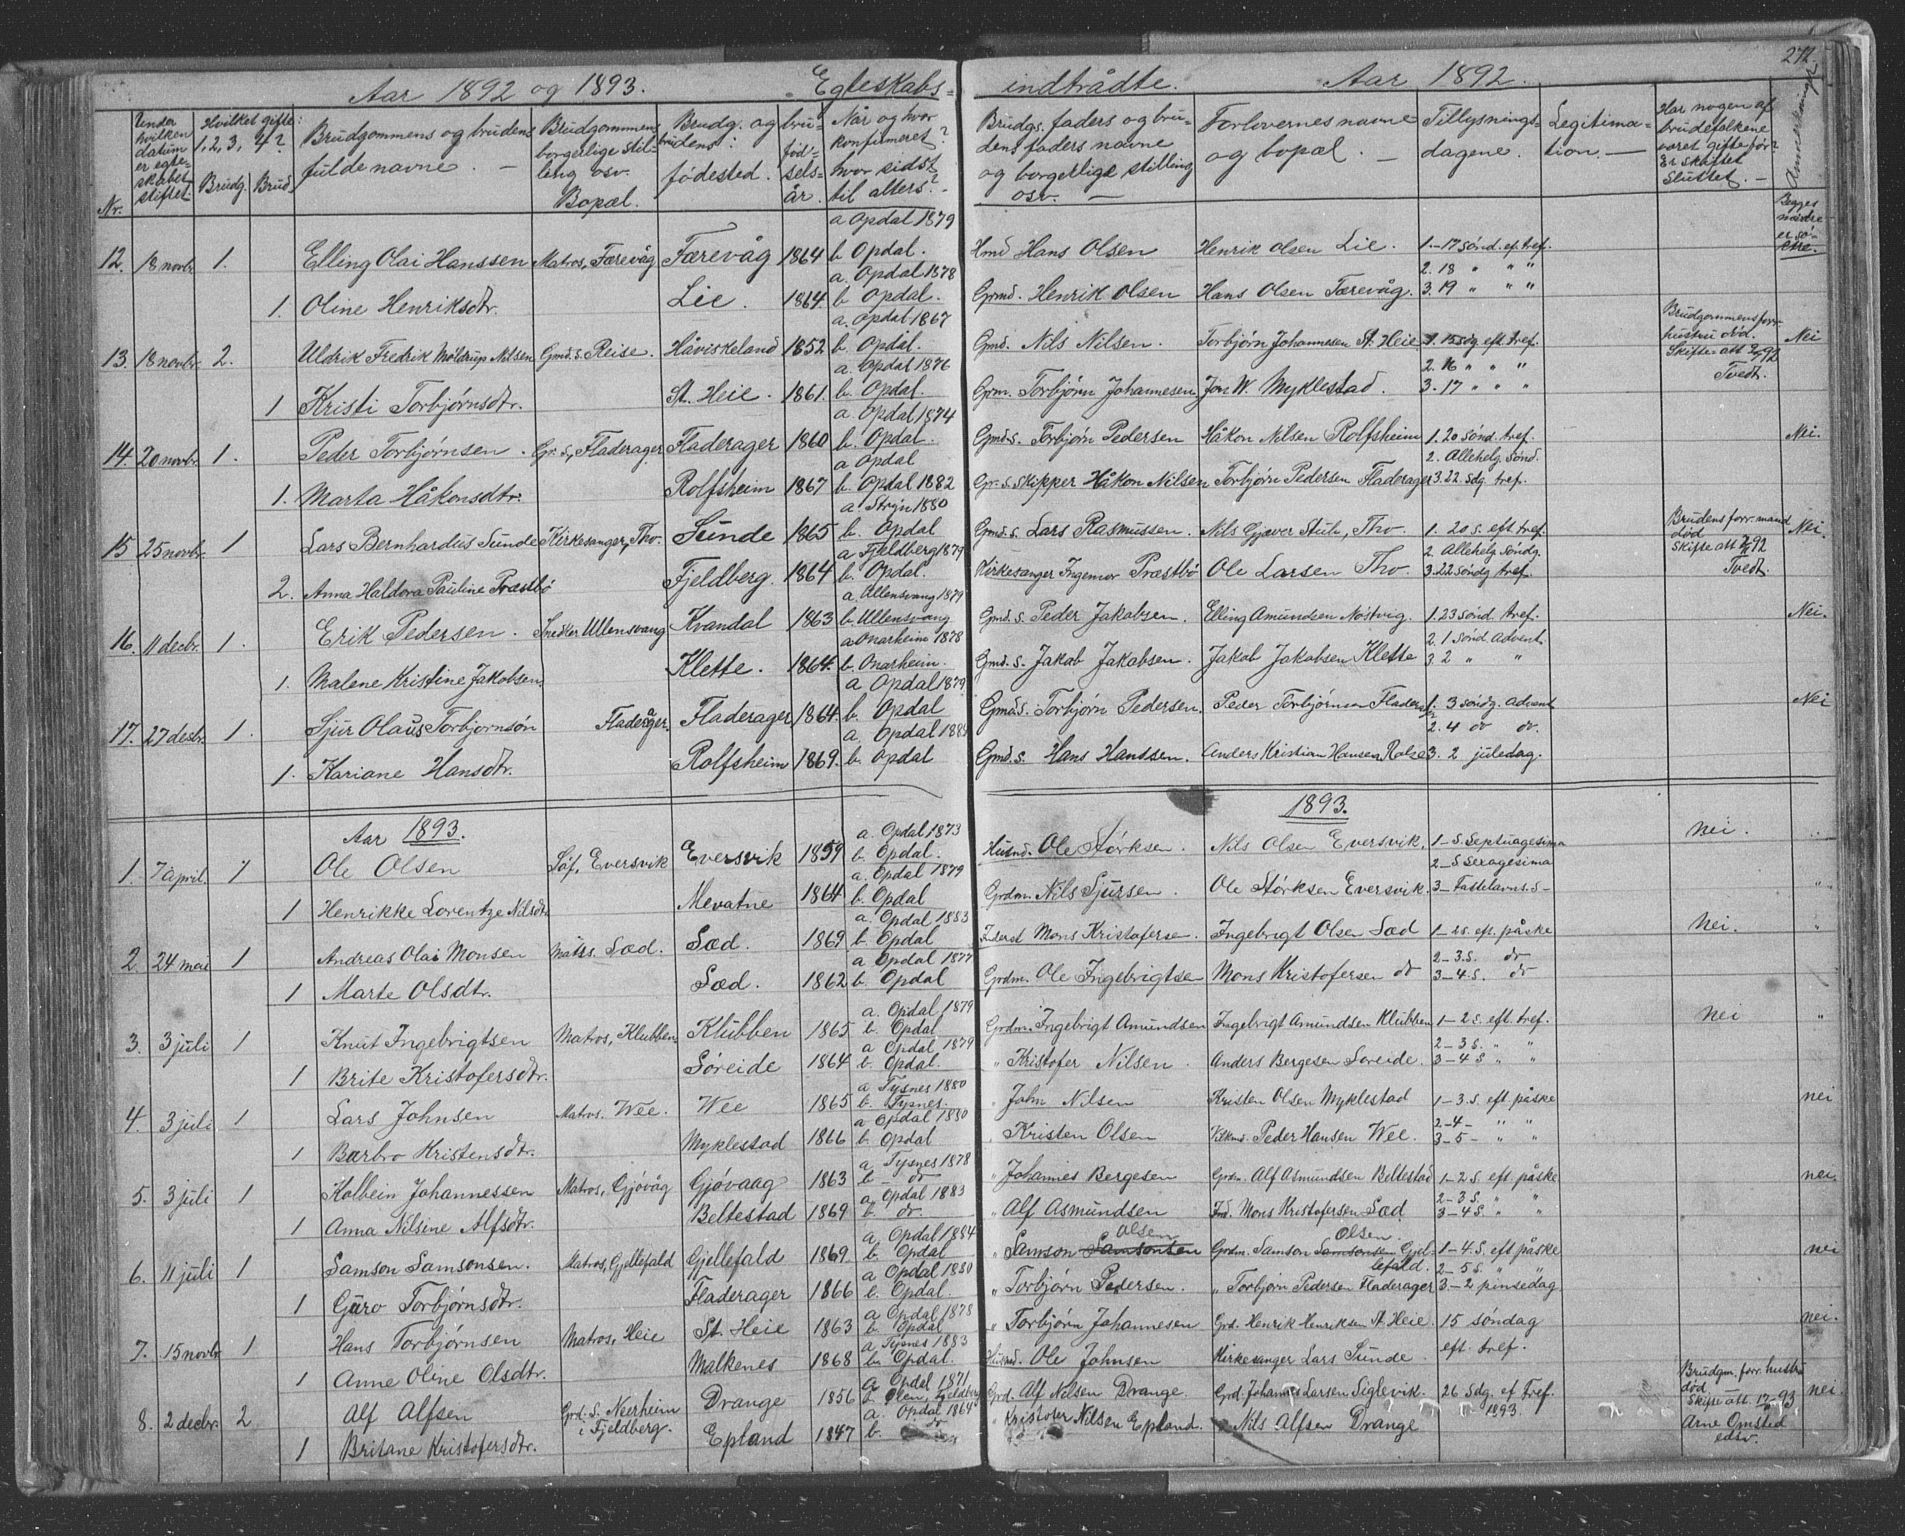 272.
Aar 1892 og 1893. Egteskabs- indtrådte. Aar 1892.
Nr. Under hvilken datum er egteskabet stiftet Hvilket gifte: 1, 2, 3, 4? Brudg. Brud Brudgommens og brudens fulde navne. Brudgommens borgerlige stilling osv. Bopæl. Brudg. og brudens: fødested. fødselsår. Når og hvor konfirmeret? hvor sidst til alters? Brudgs. faders og brudens faders navne og borgerlige stilling osv. Forlovernes navne og bopæl. Tillysningsdagene. Legitimation. Har nogen af brudefolkene været gifte før? Er skiftet sluttet. Anmerkninger
12. 18 novbr. 1. Elling Olai Hanssen Matros, Færevåg Færevåg 1864 a Opdal 1879 b Opdal. Hmd Hans Olsen Henrik Olsen Lie. 1.-17 sønd. ef. tref. Begges mødre er søstre.
1. Oline Henriksdtr. Lie. 1864. a. Opdal 1878 b. Opdal. Grmd. Henrik Olsen Hans Olsen Færevåg. 2. 18 " " " 3. 19 " " "
13. 18 novbr. 2. Uldrik Fredrik Møldrup Nilsen Gmd.s. Reise. Håviskeland 1852 a. Opdal 1867 b. Opdal. Gmd. Nils Nilsen. Torbjørn Johannesen St. Heie 1. 15 sdg. eft. tref. Brudgommens forr. hustru død. Skifteatt 2/9 92 Tvedt. Nei
1 Kristi Torbjørnsdtr. St. Heie. 1861. a. Opdal 1876 b. Opdal. Grm. Torbjørn Johannesen Jon W. Myklestad. 2. 16 " " " 3. 17 " " "
14. 20 novbr. 1. Peder Torbjørnsen. Gr. s, Fladerager Fladerager 1860 a. Opdal 1874 b. Opdal. Gmd.s. Torbjørn Pedersen Håkon Nilsen Rolfsheim 1. 20 sønd. tref. Nei.
1. Marta Håkonsdtr. Rolfsheim 1867 a Opdal b. Opdal 1882 Gr. s. Skipper Håkon Nilsen Torbjørn Pedersen Fladerager 2. Allehelg. Sønd. 3. 22 sdg tref.
15 25 novbr. 1 Lars Bernhardus Sunde Kirkesanger, Tho. Sunde 1865 a. Stryn 1880 b. Opdal Gmd.s. Lars Rasmussen. Nils Gjæver Stuh, Tho. 1. 20 s. eft tref. Brudens forr. mand død Skifte att 2/11 92 Tvedt. Nei.
2. Anna Haldora Pauline Præstbø Fjeldberg. 1864 a Fjeldberg 1879 b. Opdal. Kirkesanger Ingemor Præstbø Ole Larsen Tho 2. Allehelg søndg. 3. 22 søndg tref.
16. 11 decbr. 1. Erik Pedersen. Snedker Ullensvang Kvandal 1863 a. Ullensvang 1879 b Ullensvang Gmd. s. Peder Jakobsen. Elling Amundsen Nøstvig. 1. 23 sønd tref. Nei.
1. Malene Kristine Jakobsen. Klette. 1864. a Onarheim 1878 b. Onarheim. Gmd. s. Jakob Jakobsen. Jakob Jakobsen Klette 2. 1 sønd Advent. 3 2 " "
17. 27 desbr. 1. Sjur Olaus Torbjørnsøn Fladerager. Fladerager 1864. a Opdal 1879 b. Opdal Gmd.s. Torbjørn Pedersen. Peder Torbjørnsen Fladerager 1. 3 søndg. advent Nei
1. Kariane Hansdtr. Rolfsheim 1869. a. Opdal b. Opdal Gmd. s. Hans Hanssen. Anders Kristian Hansen 2. 4 do do. 3. 2 juledag.
Aar 1893. 1893.
1. 7 april. 1 Ole Olsen Søf, Eversvik Eversvik 1859 a. Opdal 1873 b. Opdal. Husmd. Ole Størksen. Nils Olsen Eversvik. 1-S. Septuagesima nei. "
1 Henrikke Lorentze Nilsdtr Mevatne 1864 a. Opdal 1879 b. Opdal Grdm. Nils Sjursen. Ole Størksen Eversvik. 2-S Sexagesima 3-Fastelavns. S-
2. 24 mai 1 Andreas Olai Monsen Matrs. Sæd. Sæd. 1869 a. Opdal 1883 b. Opdal Mons Kristofersen. Ingebrigt Olsen Sæd 1-2s. ef. påske Nei. "
1 Marte Olsdtr. Sæd. 1862 a Opdal 1877 b. Opdal Grdm. Ole Ingebrigtse Mons Kristofersen do 2-3.S. do 3-4.S. do
3. 3 juli 1 Knut Ingebrigtsen Matros, Klubben Klubben 1865 a. Opdal 1879 b. Opdal Grdm. Ingebrigt Amundsen Ingebrigt Amundsen Klubben 1-2S. eft. tref. nei "
1 Brite Kristofersdtr. Søreide 1864 a Opdal 1879 b. Opdal. " Kristofer Nilsen. Anders Bergesen Soreide. 2-3 S. " " 3-4 S " "
4. 3 juli 1 Lars Johnsen Matros. Wee. Wee 1865 a. Tysnes 1880 b. Tysnes. " John Nilsen Kristen Olsen Myklestad 1-3 S. eft påske nei
1 Barbro Kristensdtr. Myklestad 1866 a Opdal 1880 b Opdal " Kristen Olsen Peder Hansen Wee. 2-4- " " 3-5- " "
5. 3 juli 1 Kolbein Johannessen Matros, Gjøvåg Gjøvaag 1863 a. Tysnes 1878 b - do " Johannes Bergesen Grdm. Alf Asmundsen Beltestad 1-2 S eft påske nei.
1 Anna Nilsine Alfsdtr. Beltestad 1869 a. Opdal 1883 b do. " Alf Asmundsen Mons Kristofersen Sæd 2-3 S. " " 3-4 S. " "
6. 11 juli 1 Samson Samsonsen. Matros, Gjellefald Gjellefald 1869. a, Opdal 1884 b. Opdal " Samson Samsonsen Olsen Grdm. Samson Samsonsen Olsen. Gjellefald. 1-4.S. eft påske nei
1 Guro Torbjørnsdtr. Fladerager 1866 a Opdal 1880 b. Opdal. " Torbjørn Pedersen. " Torbjørn Pedersen Fladerager 2-5 S. " " 3-2 pinsedag
7. 15 novbr 1 Hans Torbjørnsen Matros, Heie St. Heie 1863 a Opdal 1878 b Opdal " Torbjørn Johannesen Grd. Henrik Henriksen St Heie. 15 søndag eft. tref. nei.
1 Anne Oline Olsdtr. Malkenes 1868 a. Tysnes 1883 b. Opdal. Husmd. Ole Johnsen Kirkesanger Lars Sunde.
8. 2 decbr. 2 Alf Alfsen Grd. S. Neerheim i Fjeldberg. Drange 1856 a Opdal 1871 b Ølen, Fjeldberg Grd. Alf Nilsen Drange. Grd. Johannes Larsen Siglevik. 26 Sdg. ef Tref. 1893. Brudgm. forr. hustru død Skifte att. 93 Arne Omsted edsv. nei.
1 Britane Kristofersdtr. Epland 1847 a. Opdal 1864 b. do " Kristofer Nilsen Epland. " Nils Alfsen Drange